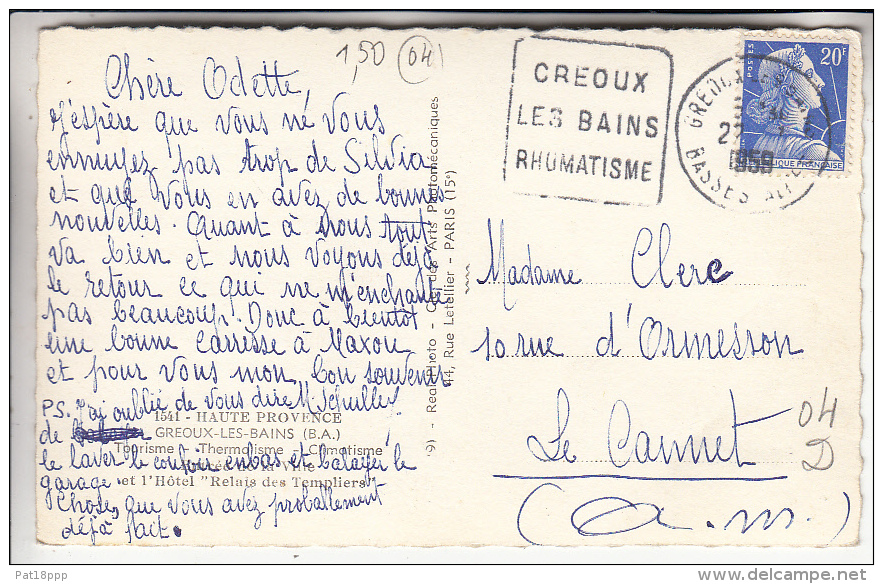 1,50 (04)
Chère Odette,
j'espère que vous ne vous
ennuyez pas trop de Silvia
et que vous en avez de bonnes
nouvelles. Quant à nous tout
va bien et nous voyons déjà
le retour ce qui ne m'enchante
pas beaucoup! Donc à bientôt
une bonne carresse à Maxou
et pour vous mon bon souvenir
PS. J'ai oublié de vous dire
1541 - HAUTE PROVENCE
de
GREOUX-LES-BAINS (B.A.)
Tourisme - Thermalisme - Climatisme
le laver le couloir en bas et balayer le
garage
et l'Hôtel "Relais des Templiers"
choses que vous avez proballement
déjà fait.
Arts Photomécaniques
44, Rue Letellier - PARIS (15e)
GREOUX
LES BAINS
RHUMATISME
POSTES
20F
REPUBLIQUE FRANÇAISE
GREOUX-LES-BAINS
BASSES ALPES
Madame Clerc
10 rue d'Ormesson
Le Cannet
(A.M.)
04
D
Pat18ppp
www.delcampe.net